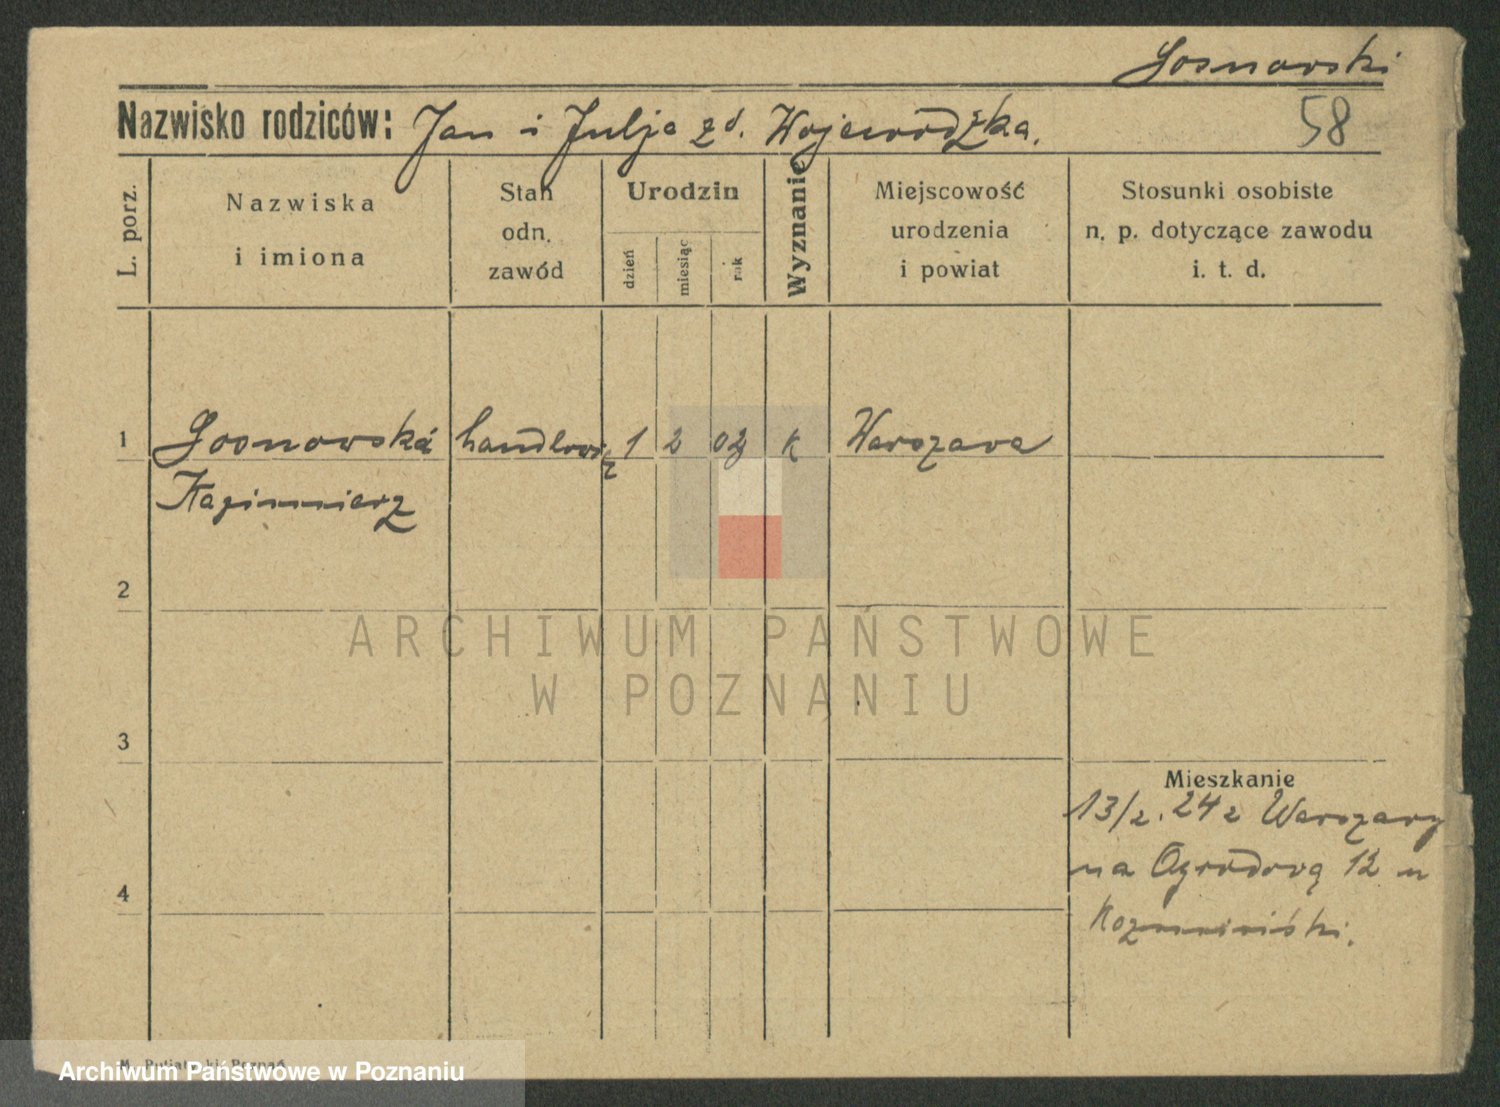 Sosnowski
Nazwisko rodziców: Jan i Julja zd. Wojewódzka.
58
L. porz.
Nazwiska
i imiona
Stan
odn.
zawód
Urodzin
dzień
miesiąc
rok
Wyznanie
Miejscowość
urodzenia
i powiat
Stosunki osobiste
n. p. dotyczące zawodu
i. t. d.
1 Sosnowski handlowiec 1 2 02 k Warszawa
Kazimierz
2
ARCHIWUM PAŃSTWOWE
W POZNANIU
3
Mieszkanie
13/2. 24 z Warszawy
na Ogrodową 12 u
4
M. Putiatycki, Poznań
Archiwum Państwowe w Poznaniu